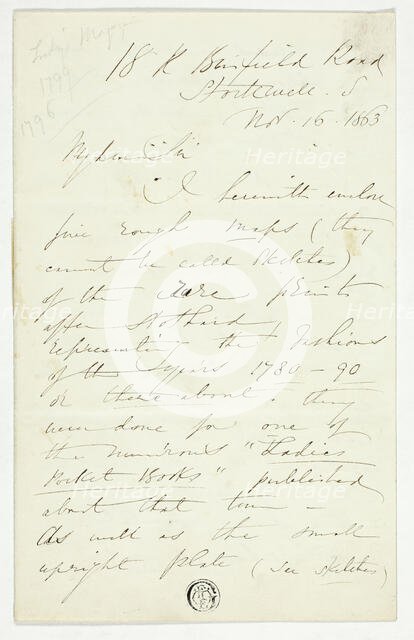 Lady's Mag
1799
1796
18 Binfield Road
Stockwell. S
Nov. 16. 1863
My dear Sir
I herewith enclose
five rough maps (they
cannot be called sketches)
of the rare prints
after Stothard
representing the Fashions
of the years 1780-90
or there about. They
were done for one of
the numerous "Ladies
Pocket Books" published
about that time -
As well as the small
upright plate (see sketches)